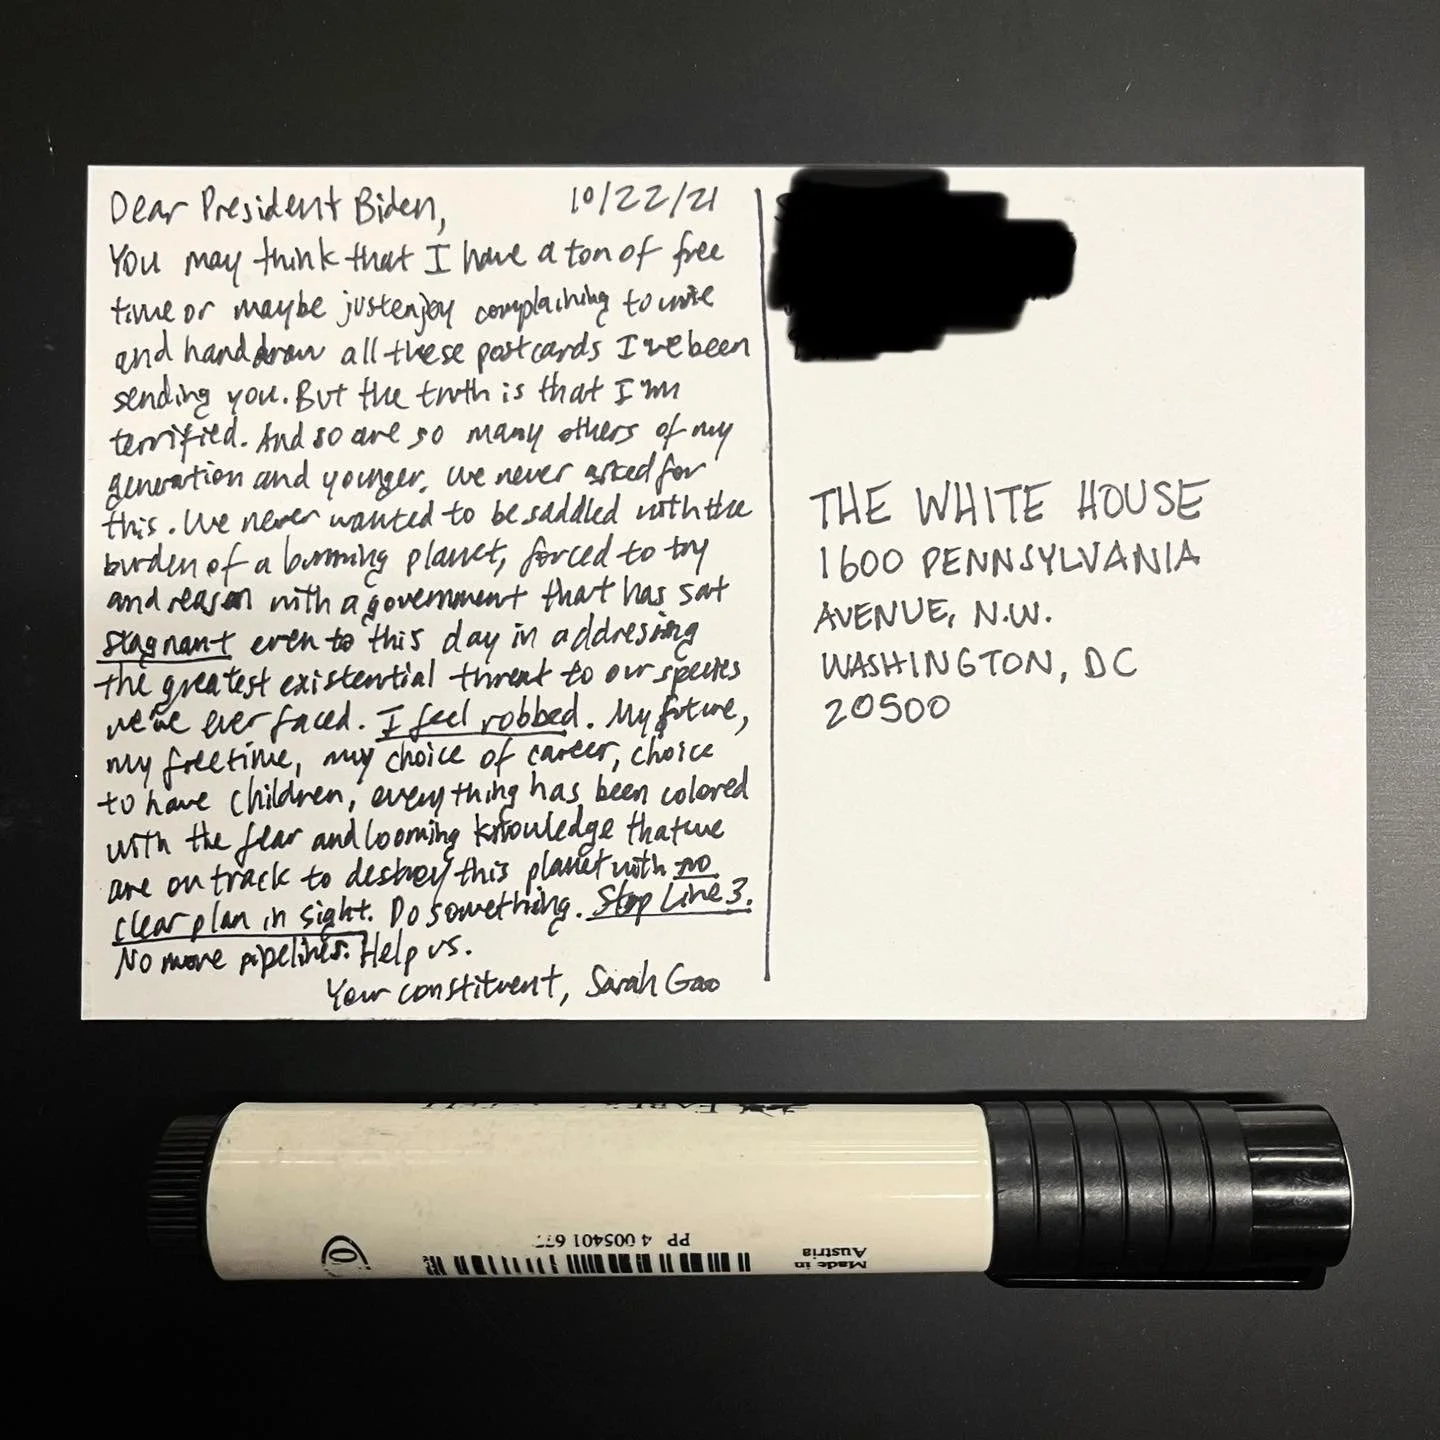 Dear President Biden, 10/22/21
You may think that I have a ton of free
time or maybe just enjoy complaining to write
and hand draw all these postcards I've been
sending you. But the truth is that I'm
terrified. And so are so many others of my
generation and younger. We never asked for
this. We never wanted to be saddled with the
burden of a burning planet, forced to try
and reason with a government that has sat
stagnant even to this day in addressing
the greatest existential threat to our species
we've ever faced. I feel robbed. My future,
my free time, my choice of career, choice
to have children, everything has been colored
with the fear and looming knowledge that we
are on track to destroy this planet with no
clear plan in sight. Do something. Stop Line 3.
No more pipelines. Help us.
Your constituent, Sarah Gao
THE WHITE HOUSE
1600 PENNSYLVANIA
AVENUE, N.W.
WASHINGTON, DC
20500
PP 4 005401 677
Made in
Austria